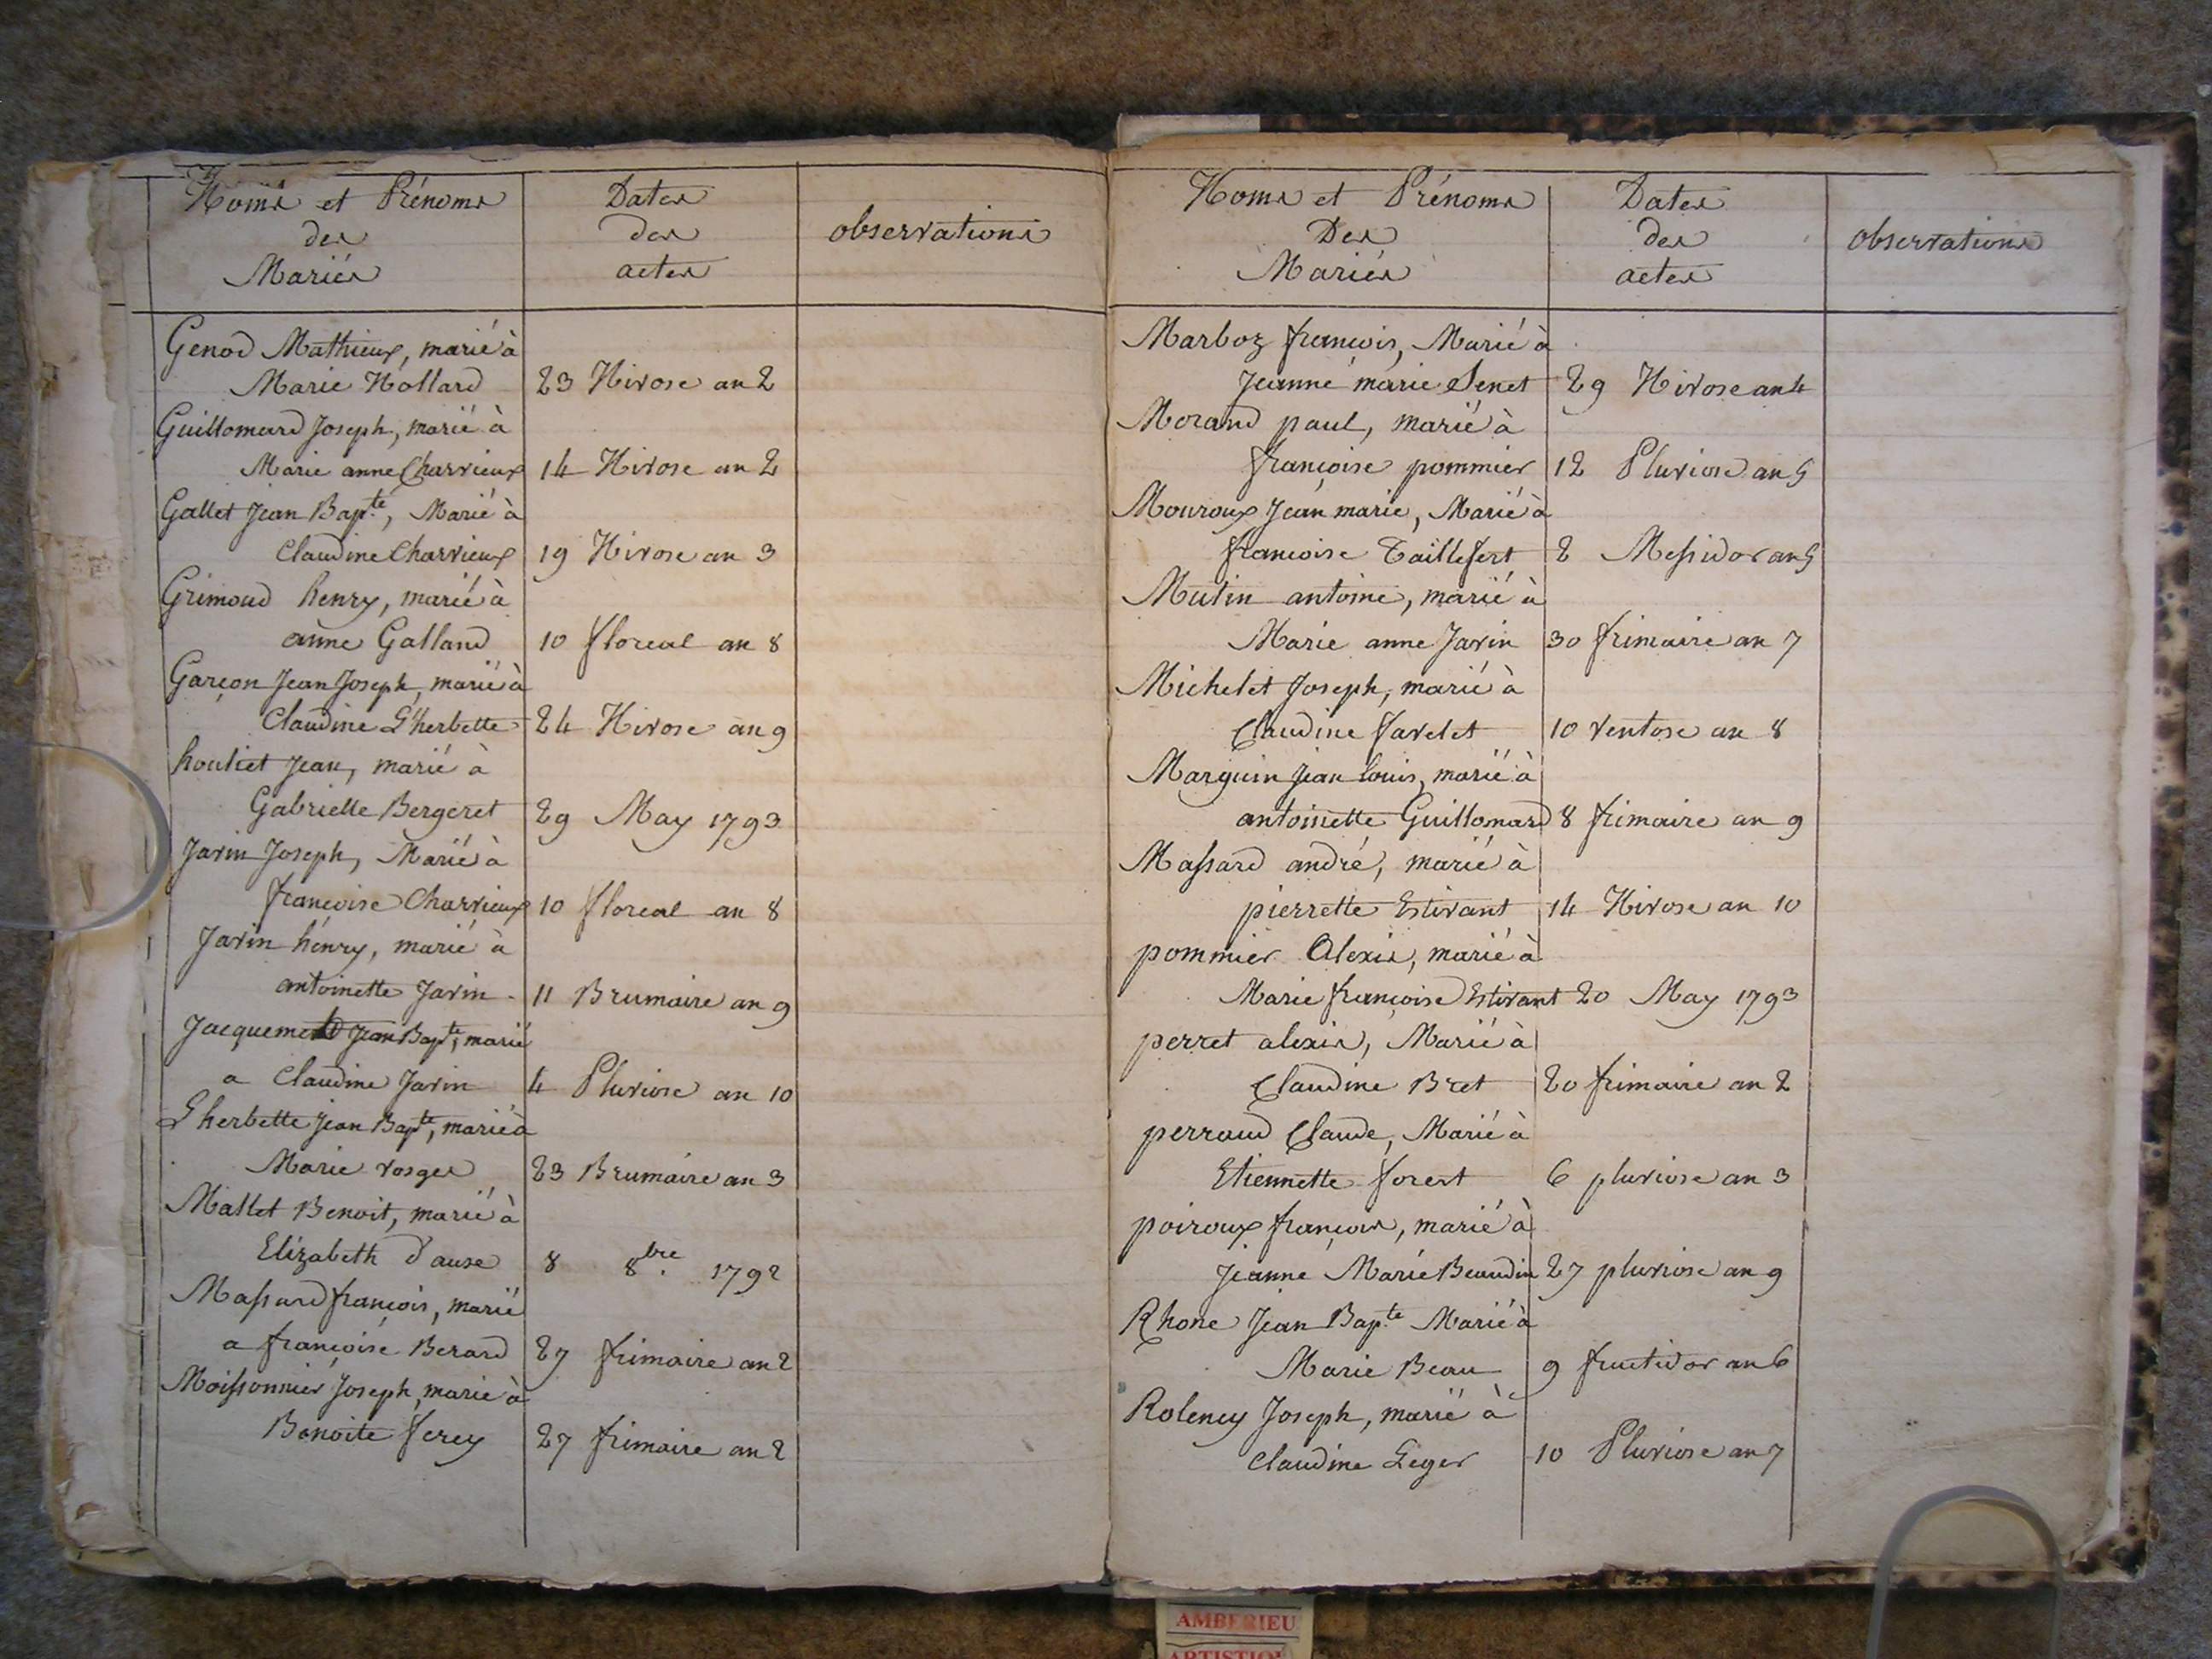 Noms et Prénoms
des
Mariés
Dates
des
actes
observations
Genod Mathieux, marié à
Marie Hollard 23 Nivose an 2
Guillomard Joseph, marié à
Marie anne Charvieux 14 Nivose an 2
Gallet Jean Bapte, Marié à
Claudine Charvieux 19 Nivose an 3
Grimoud henry, marié à
anne Galland 10 floreal an 8
Garçon Jean Joseph, marié à
Claudine L'herbette 24 Nivose an 9
houliet Jean, marié à
Gabrielle Bergeret 29 May 1793
Jarin Joseph, Marié à
françoise Charvieux 10 floreal an 8
Jarin hénry, marié à
antoinette Jarin 11 Brumaire an 9
Jean Bapte, marié
a Claudine Jarin 4 Pluviose an 10
L'herbette Jean Bapte, marié à
Marie vosges 23 Brumaire an 3
Mallet Benoit, marié à
Elizabeth d'ause 8 8bre. 1792
Massard françois, marié
a françoise Berard 27 frimaire an 2
Moissonnier Joseph, marié à
Benoite ferey 27 frimaire an 2
Noms et Prénoms
Des
Mariés
Dates
des
actes
observations
Marboz francois, Marié à
Jeanne marie Senet 29 Nivose an 4
Morand paul, marié à
françoise pommier 12 Pluviose an 5
Mouroux Jean marie, Marié à
francoise Taillefert 2 Messidor an 5
Mutin antoine, marié à
Marie anne Jarin 30 frimaire an 7
Michelet Joseph, marié à
Claudine favelet 10 ventose an 8
Marguin Jean louis, marié à
antoinette Guillomard 8 frimaire an 9
Massard andré, marié à
pierrette Estivant 14 Nivose an 10
pommier Alexis, marié à
Marie françoise Estivant 20 May 1793
perret alexis, Marié à
Claudine Bret 20 frimaire an 2
perraud Claude, Marié à
Etiennette forest 6 pluviose an 3
poiroux françois, marié à
Jeanne Marie Beaudin 27 pluviose an 9
Rhone Jean Bapte Marié à
Marie Beau 9 fructidor an 6
Roleney Joseph, marié à
Claudine Leger 10 Pluviose an 7
AMBERIEU